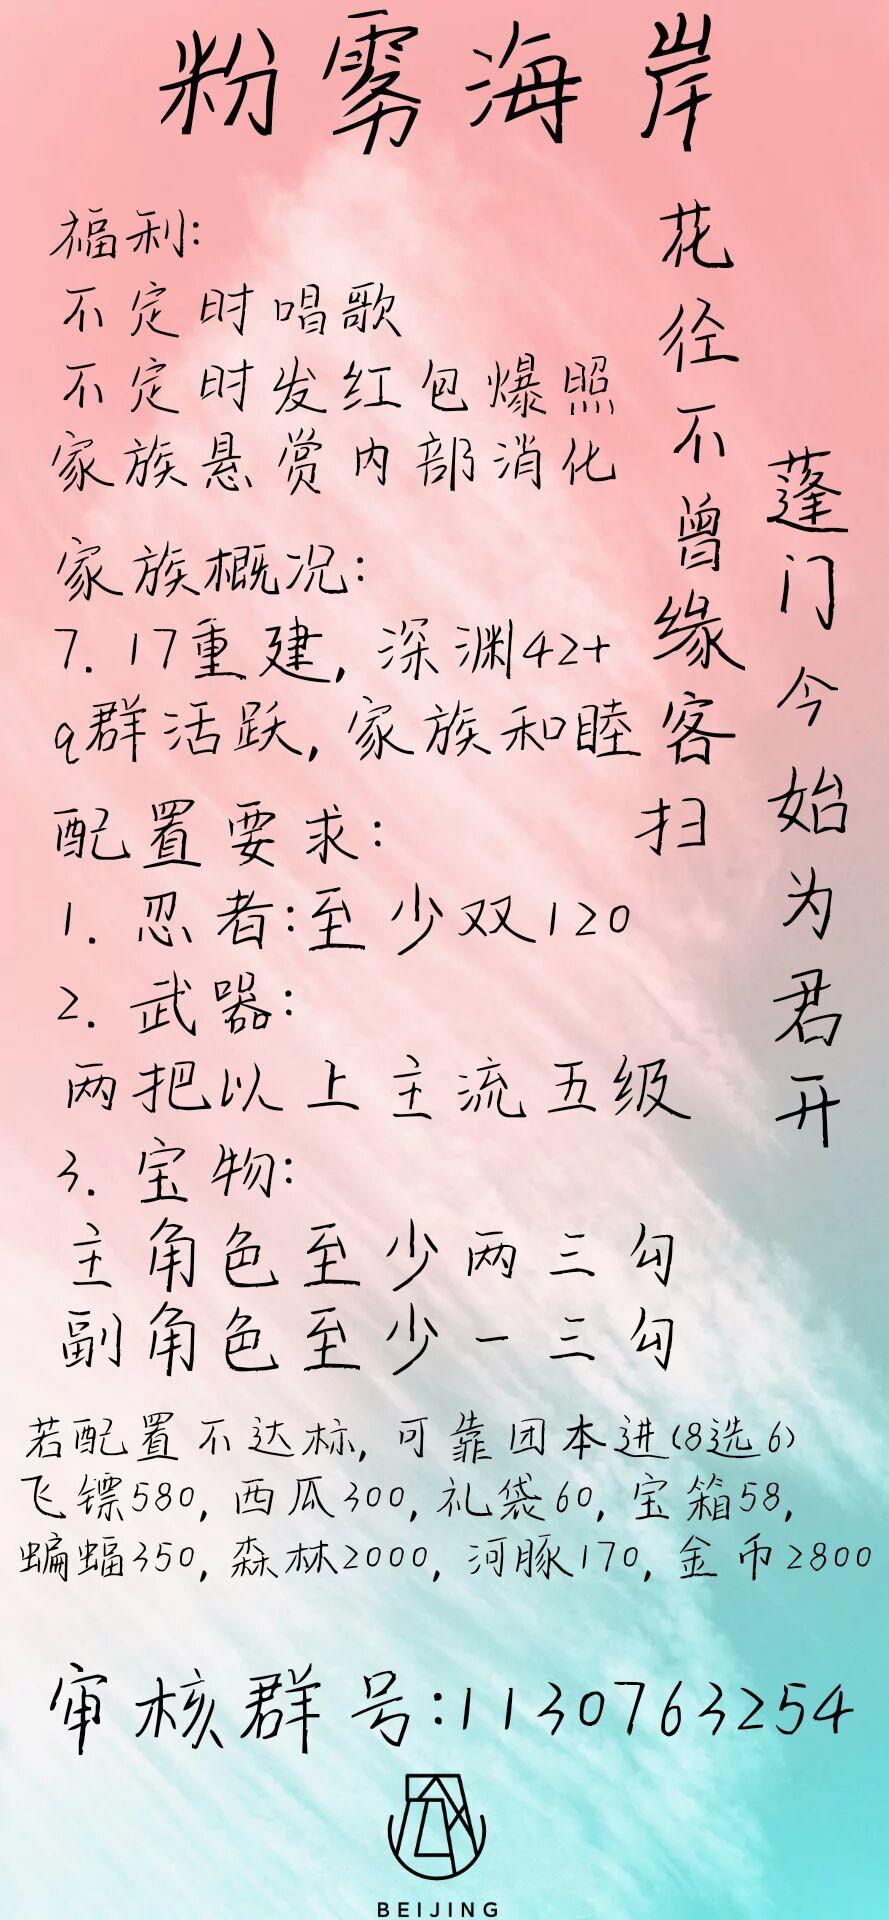 粉雾海岸
花径不曾缘客扫
蓬门今始为君开
福利:
不定时唱歌
不定时发红包爆照
家族悬赏内部消化
家族概况:
7.17重建,深渊42+
q群活跃,家族和睦
配置要求:
1.忍者:至少双120
2.武器:
两把以上主流五级
3.宝物:
主角色至少两三勾
副角色至少一三勾
若配置不达标,可靠团本进(8选6)
飞镖580,西瓜300,礼袋60,宝箱58,
蝙蝠350,森林2000,河豚170,金币2800
审核群号:1130763254
BEIJING